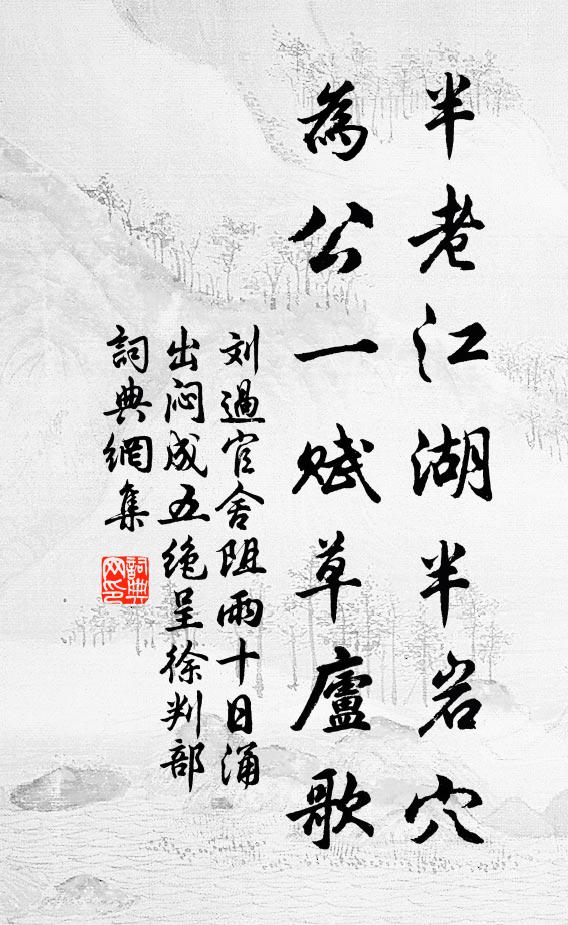 半老江湖半岩穴
為公一赋草廬歌
刘過官舍阻雨十日涌
出闷成五绝呈徐判部
詞典網集
詞典网印